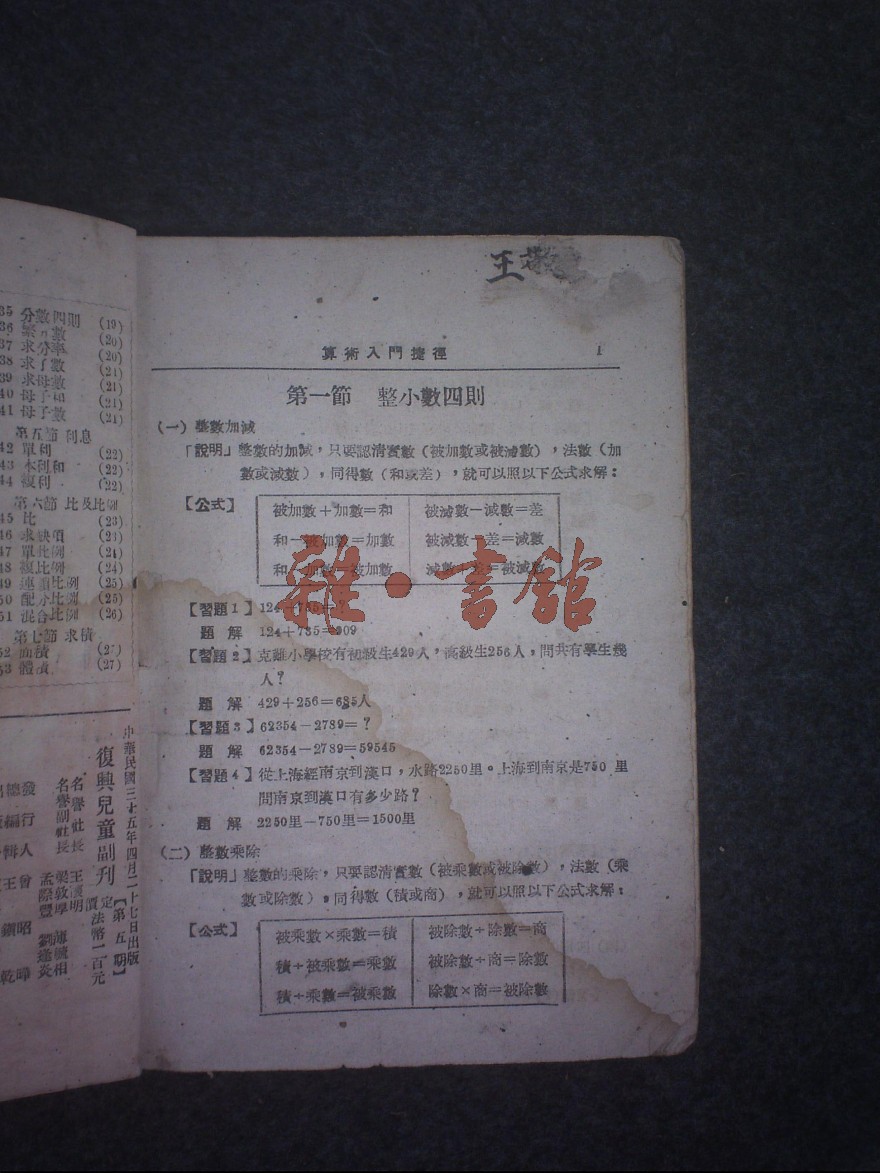 王
算術入門捷徑 1
第一節 整小數四則
(一) 整數加減
「說明」整數的加減，只要認清實數（被加數或被減數），法數（加
數或減數），同得數（和或差），就可以照以下公式求解：
【公式】
被加數＋加數＝和 被減數－減數＝差
和－被加數＝加數 被減數－差＝減數
和－加數＝被加數 減數＋差＝被減數
【習題1】124＋785＝？
題解 124＋785＝909
【習題2】克難小學校有初級生429人，高級生256人，問共有學生幾
人？
題解 429＋256＝685人
【習題3】62354－2789＝？
題解 62354－2789＝59545
【習題4】從上海經南京到漢口，水路2250里。上海到南京是750里
問南京到漢口有多少路？
題解 2250里－750里＝1500里
(二) 整數乘除
「說明」整數的乘除，只要認清實數（被乘數或被除數），法數（乘
數或除數），同得數（積或商），就可以照以下公式求解：
【公式】
被乘數×乘數＝積 被除數÷除數＝商
積÷被乘數＝乘數 被除數÷商＝除數
積÷乘數＝被乘數 除數×商＝被除數
雜・書館
35 分數四則 (19)
36 繁分數 (20)
37 求分率 (20)
38 求子數 (21)
39 求母數 (21)
40 母子和 (21)
41 母子數 (21)
第五節 利息
42 單利 (22)
43 本利和 (22)
44 複利 (22)
第六節 比及比例
45 比 (23)
46 求缺項 (21)
47 單比例 (24)
48 複比例 (24)
49 連鎖比例 (25)
50 配分比例 (25)
51 混合比例 (26)
第七節 求積
52 面積
53 體積 (27)
中華民國三十五年四月二十七日出版
復興兒童副刋
【第五期】
定價法幣一百元
名譽社長 王漢明
名譽副社長 孟際豐
發行人